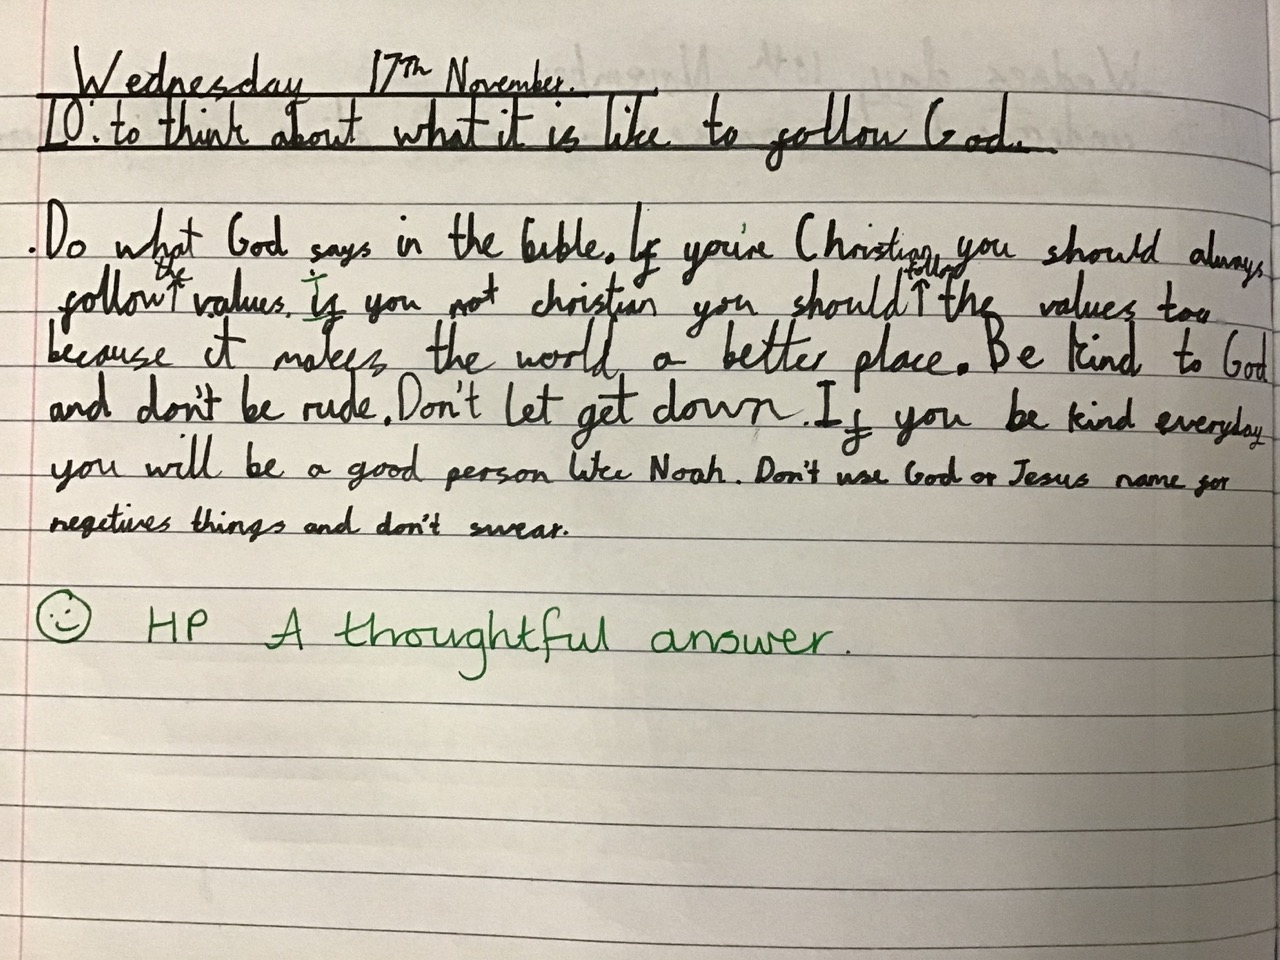 Wednesday 17Th November.
LO: to think about what it is like to follow God.
. Do what God says in the bible. If you're Christian you should always
follow the values. If you not christian you should follow the values too
because it makes the world a better place. Be kind to God
and don't be rude. Don't let get down. If you be kind everyday
you will be a good person like Noah. Don't use God or Jesus name for
negetives things and don't swear.
HP A thoughtful answer.